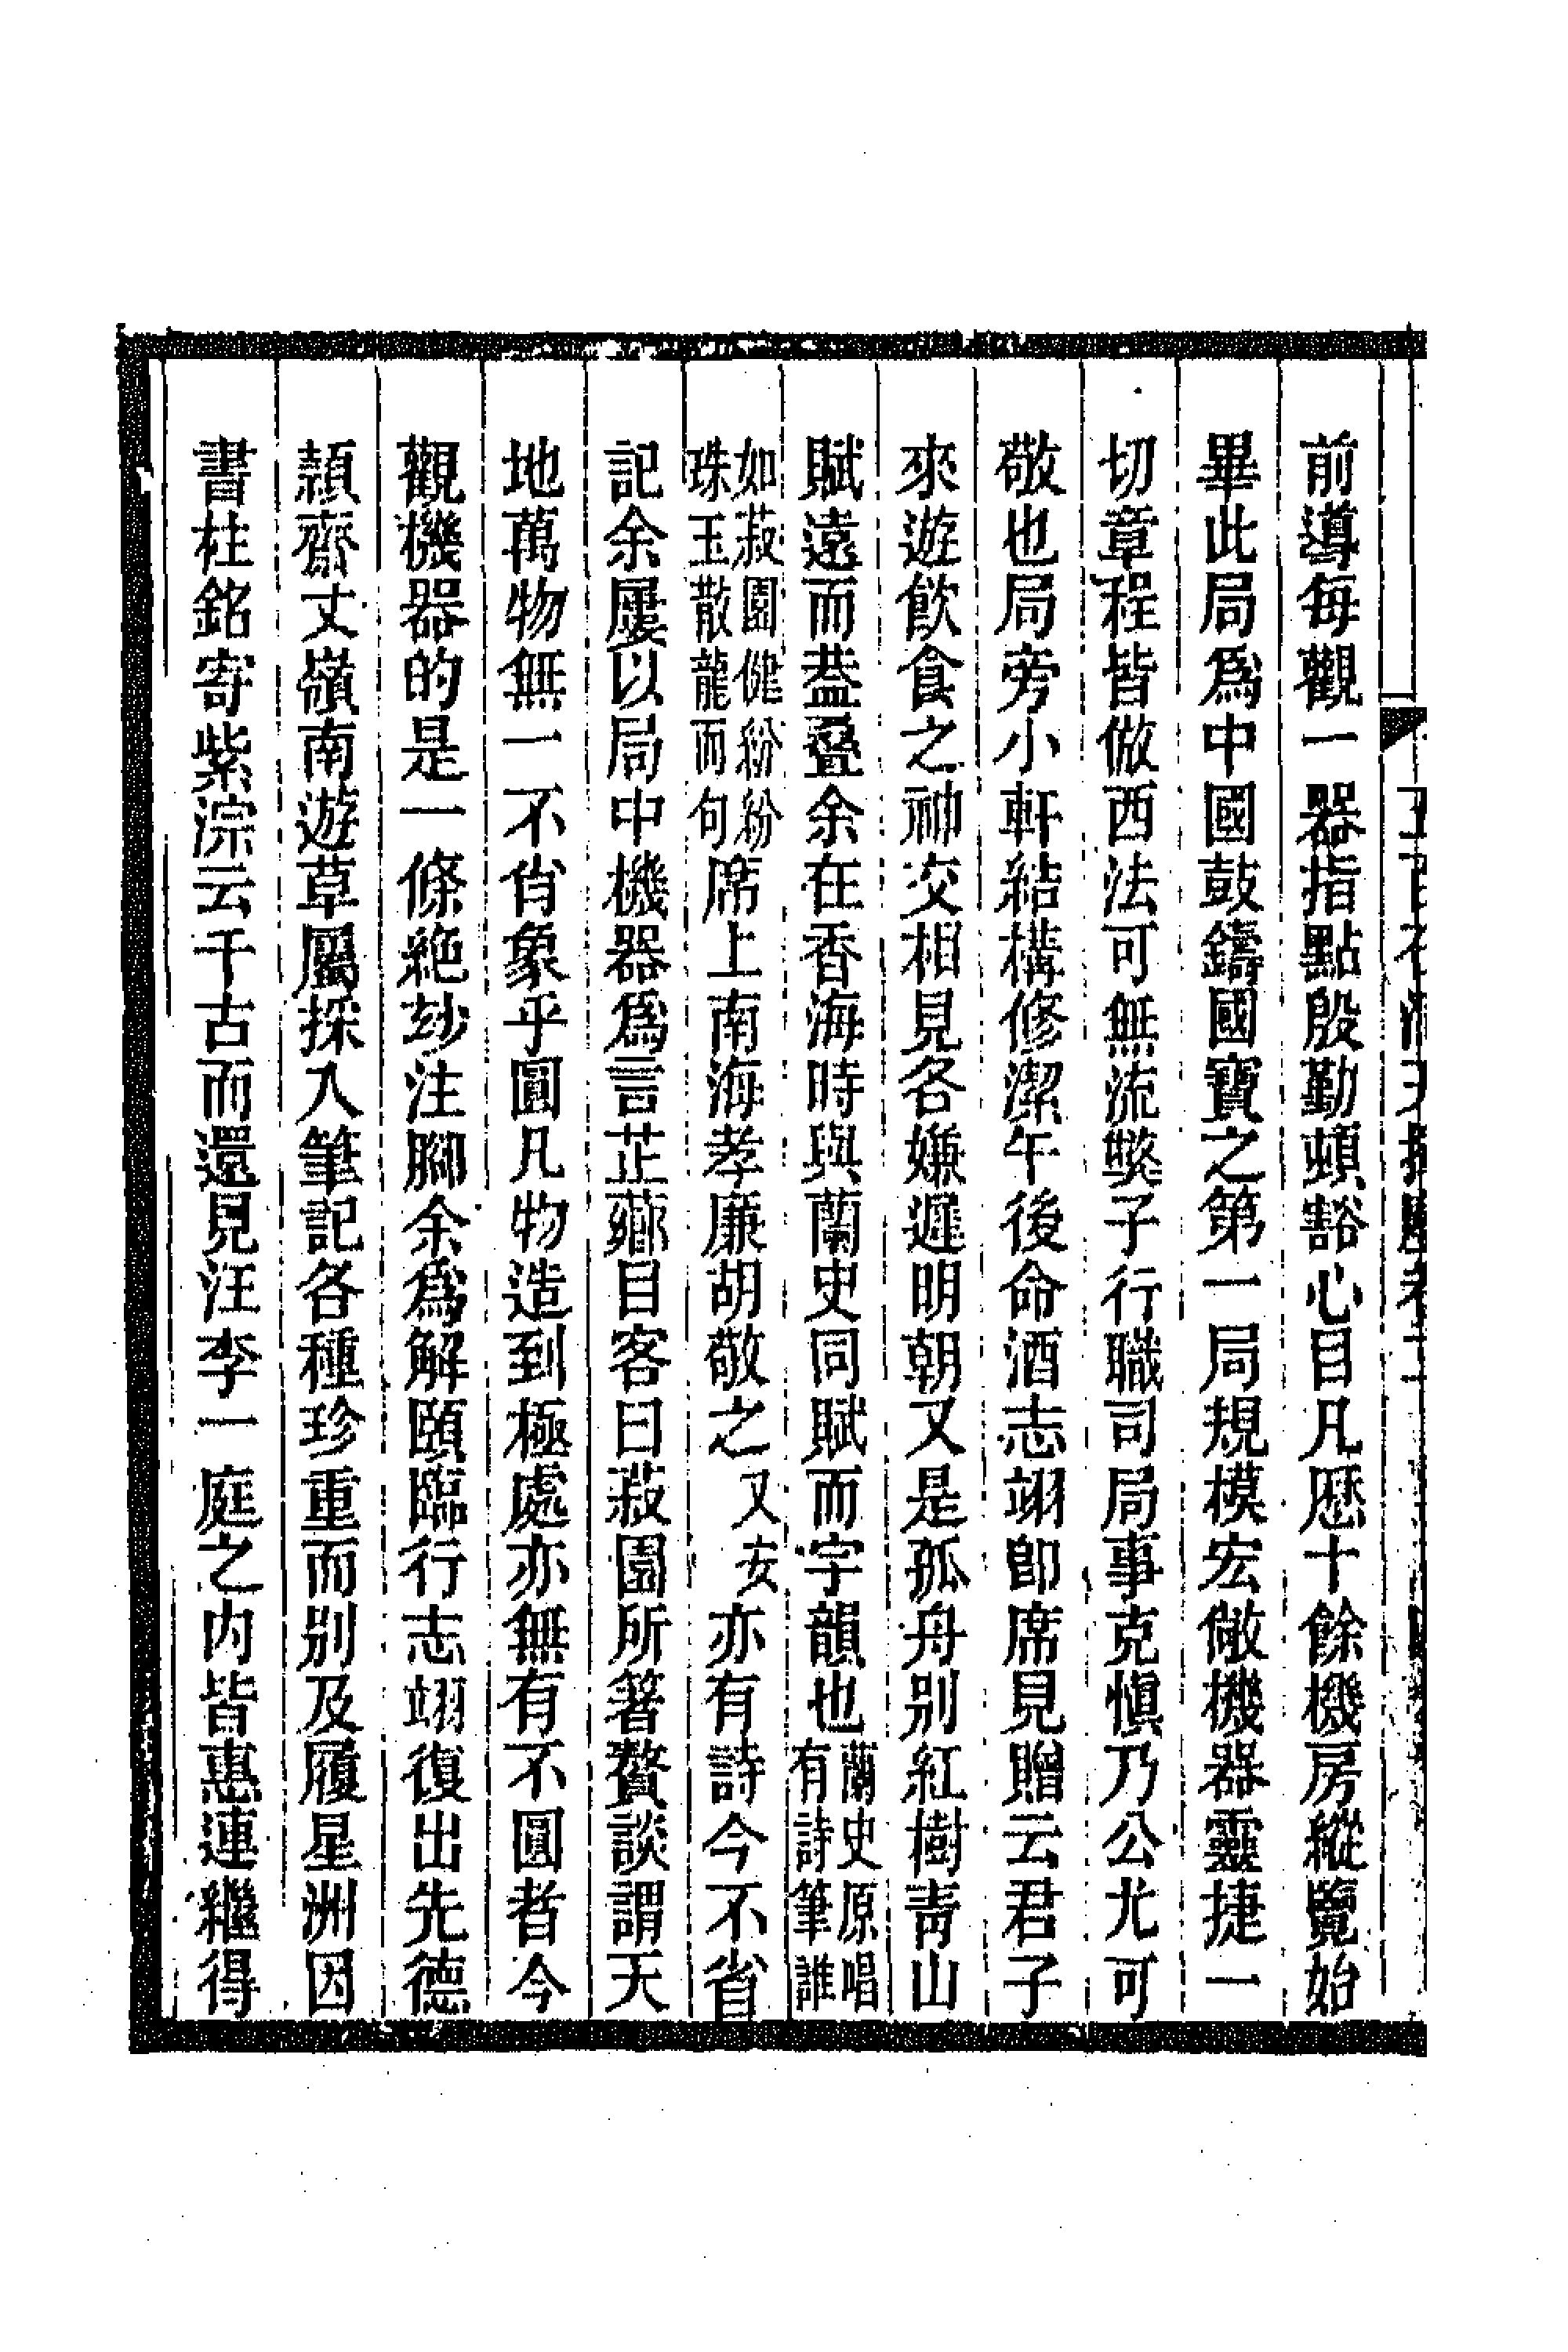 前導每觀一器指點殷勤頓豁心目凡歷十餘機房縱覽始
畢此局爲中國鼓鑄國寶之第一局規模宏敞機器靈捷一
切章程皆倣西法可無流獘子行職司局事克愼乃公尤可
敬也局旁小軒結構修潔午後命酒志翊卽席見贈云君子
來遊飲食之神交相見各嫌遲明朝又是孤舟别紅樹靑山
賦遠而葢疊余在香海時與蘭史同賦而字韻也蘭史原唱有詩筆誰
如菽園健紛紛珠玉散龍而句席上南海孝廉胡敬之又安亦有詩今不省
記余屢以局中機器爲言芷薌目客曰菽園所箸贅談謂天
地萬物無一不肖象乎圓凡物造到極處亦無有不圓者今
觀機器的是一條絶玅注腳余爲解頤臨行志翊復出先德
頴齋丈嶺南遊草屬採入筆記各種珍重而别及履星洲因
書柱銘寄紫淙云千古而還見汪李一庭之内皆惠連繼得